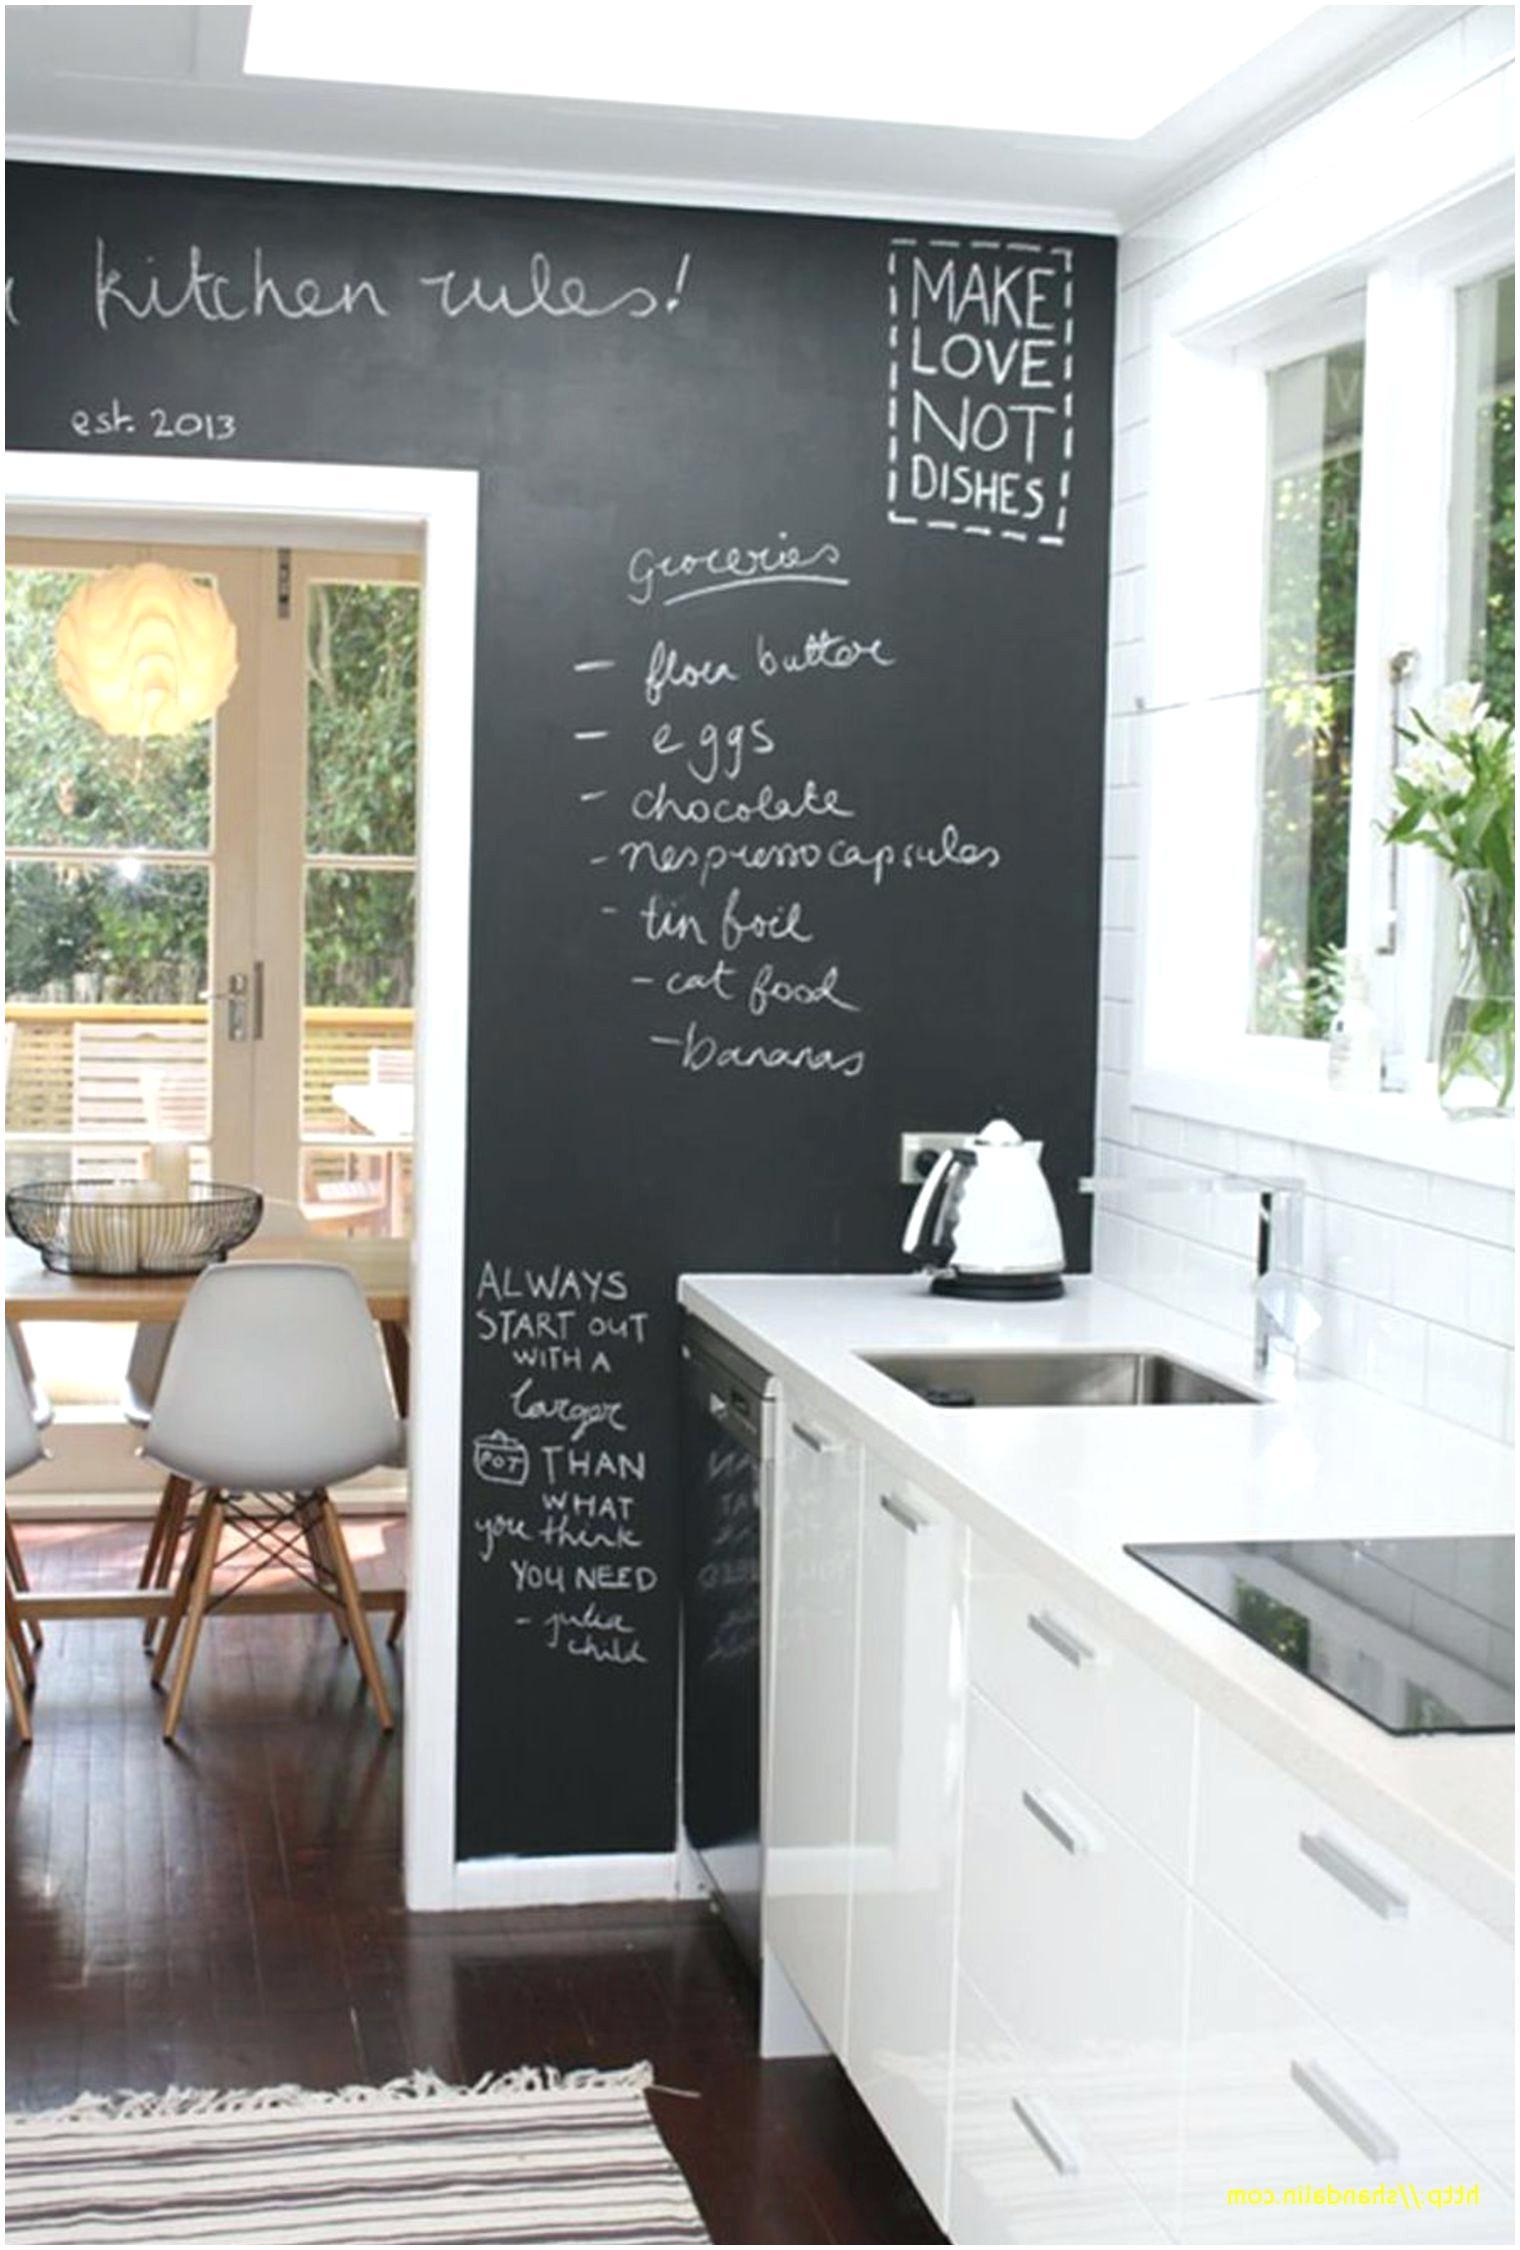 kitchen rules!
est. 2013
MAKE
LOVE
NOT
DISHES
Groceries
- flora butter
- eggs
- chocolate
- nespresso capsules
- tin foil
- cat food
- bananas
ALWAYS
START OUT
WITH A
larger
POT THAN
WHAT
you think
YOU NEED
- julia
child
http://shandalin.com